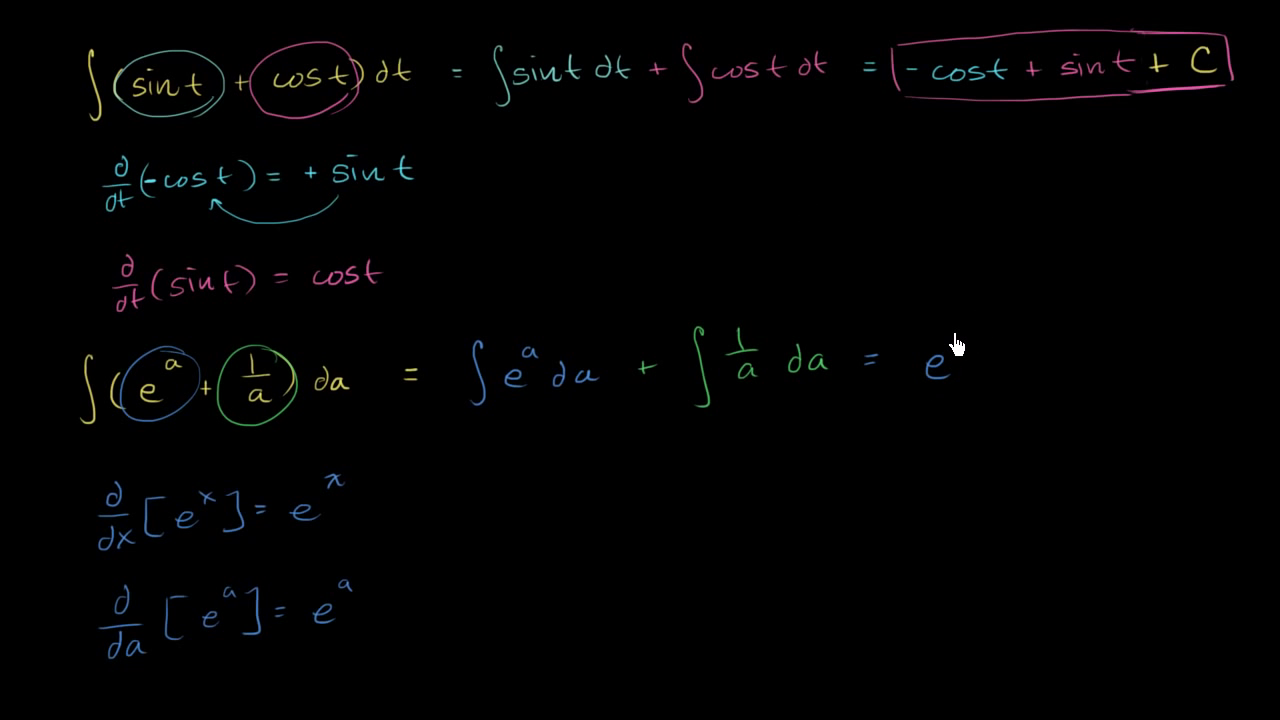 ∫(sin t + cos t) dt = ∫sin t dt + ∫cos t dt = -cos t + sin t + C
d/dt(-cos t) = + sin t
d/dt(sin t) = cos t
∫(e^a + 1/a) da = ∫e^a da + ∫1/a da = e
d/dx[e^x] = e^x
d/da[e^a] = e^a